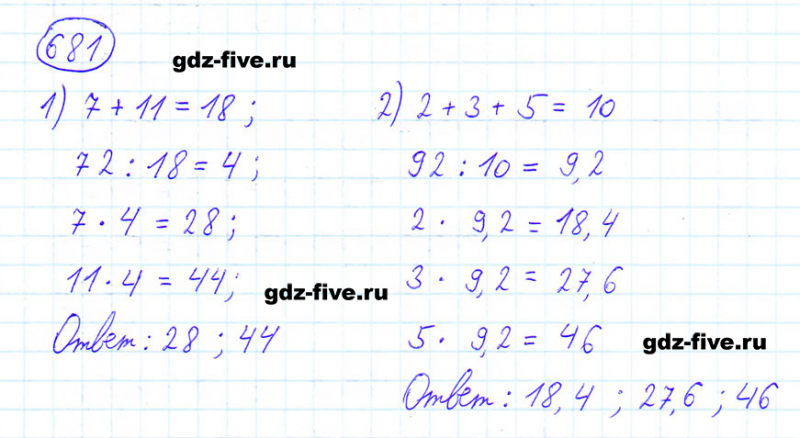 681
gdz-five.ru
1) 7 + 11 = 18 ;
72 : 18 = 4 ;
7 · 4 = 28 ;
11 · 4 = 44 ;
gdz-five.ru
Ответ : 28 ; 44
2) 2 + 3 + 5 = 10
92 : 10 = 9,2
2 · 9,2 = 18,4
3 · 9,2 = 27,6
5 · 9,2 = 46
gdz-five.ru
Ответ : 18,4 ; 27,6 ; 46